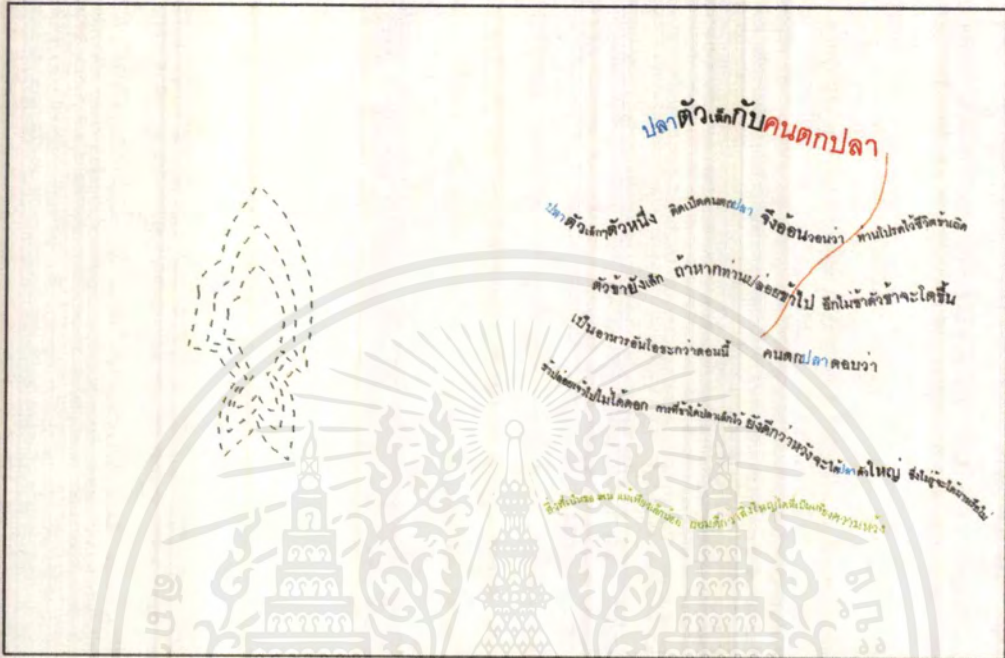 ปลาตัวเล็กกับคนตกปลา
ปลาตัวเล็กๆตัวหนึ่ง ติดเบ็ดคนตกปลา จึงอ้อนวอนว่า ท่านโปรดไว้ชีวิตข้าเถิด
ตัวข้ายังเล็ก ถ้าหากท่านปล่อยข้าไป อีกไม่ช้าตัวข้าจะโตขึ้น
เป็นอาหารอันโอชะกว่าตอนนี้ คนตกปลาตอบว่า
ข้าปล่อยเจ้าไปไม่ได้ดอก การที่ข้าได้ปลาเล็กไว้ ยังดีกว่าหวังจะได้ปลาตัวใหญ่ ซึ่งไม่รู้จะได้มาหรือไม่
สิ่งที่เป็นของตน แม้เพียงเล็กน้อย ย่อมดีกว่าสิ่งใหญ่โตที่เป็นเพียงความหวัง